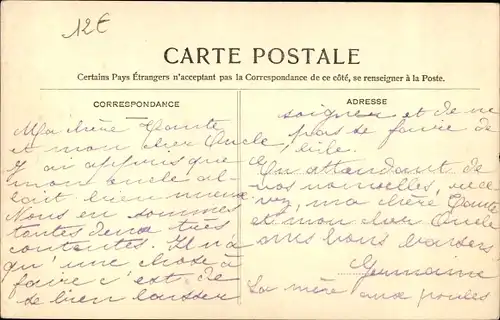 12€
CARTE POSTALE
Certains Pays Étrangers n'acceptant pas la Correspondance de ce côté, se renseigner à la Poste.
CORRESPONDANCE
Ma chère Tante
et mon cher Oncle,
J'ai appris que
mon oncle al-
lait bien mieux
Nous en sommes
toutes deux très
contentes. Il n'a
qu'une chose à
faire c'est de
se bien laisser
ADRESSE
soigner et de ne
pas se faire de
bile.
En attendant de
vos nouvelles, rece-
vez, ma chère Tante
et mon cher Oncle
mes bons baisers
Germaine
La mère aux poules